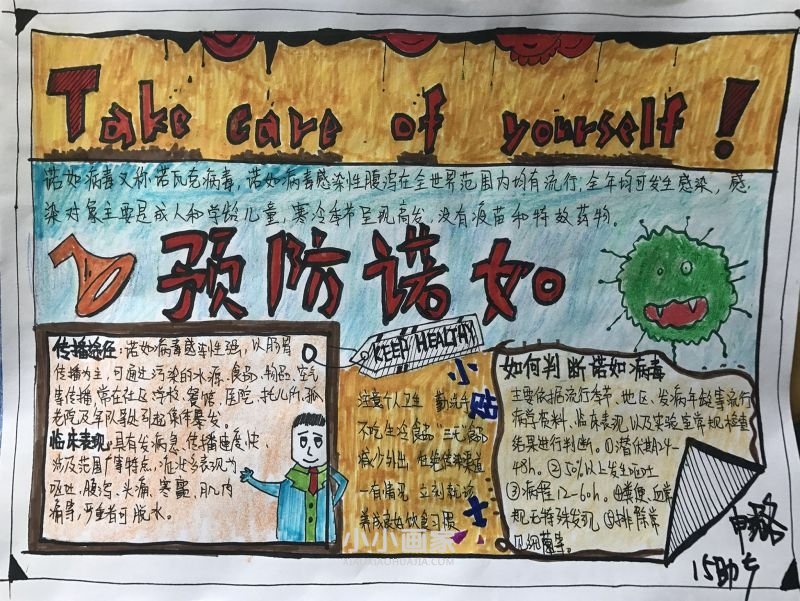 Take care of yourself!
诺如病毒又称诺瓦克病毒,诺如病毒感染性腹泻在全世界范围内均有流行,全年均可发生感染,感
染对象主要是成人和学龄儿童,寒冷季节呈现高发,没有疫苗和特效药物。
预防诺如
KEEP HEALTHY
传播途径:诺如病毒感染性强,以肠胃
传播为主,可通过污染的水源、食品、物品、空气
等传播,常在社区、学校、餐馆、医院、托儿所、孤
老院及军队等处引起集体暴发。
临床表现:具有发病急、传播速度快、
涉及范围广等特点,症状多表现为
呕吐、腹泻、头痛、寒颤、肌肉
痛等,严重者可脱水。
小贴士
注意个人卫生 勤洗手
不吃生冷食品 "三无"食品
减少外出 杜绝传染渠道
一有情况 立刻就诊
养成良好饮食习惯
如何判断诺如病毒
主要依据流行季节、地区、发病年龄等流行
病学资料、临床表现以及实验室常规检查
结果进行判断。①潜伏期24-
48h。②50%以上发生呕吐
③病程12-60h。④粪便、血常
规无特殊发现 ⑤排除常
见细菌等。
15助产
小小画家
XIAOXIAOHUAJIA.COM